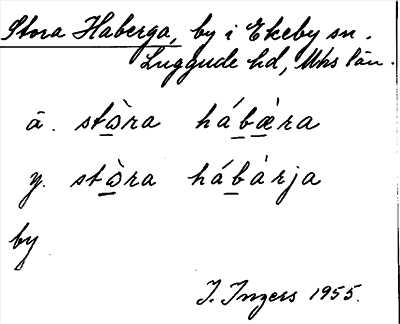 Stora Haberga, by i Ekeby sn.
Luggude hd, Mhs län.
ä. stòra hábæ̀ra
y. stòra hábàrja
by
I. Ingers 1955.